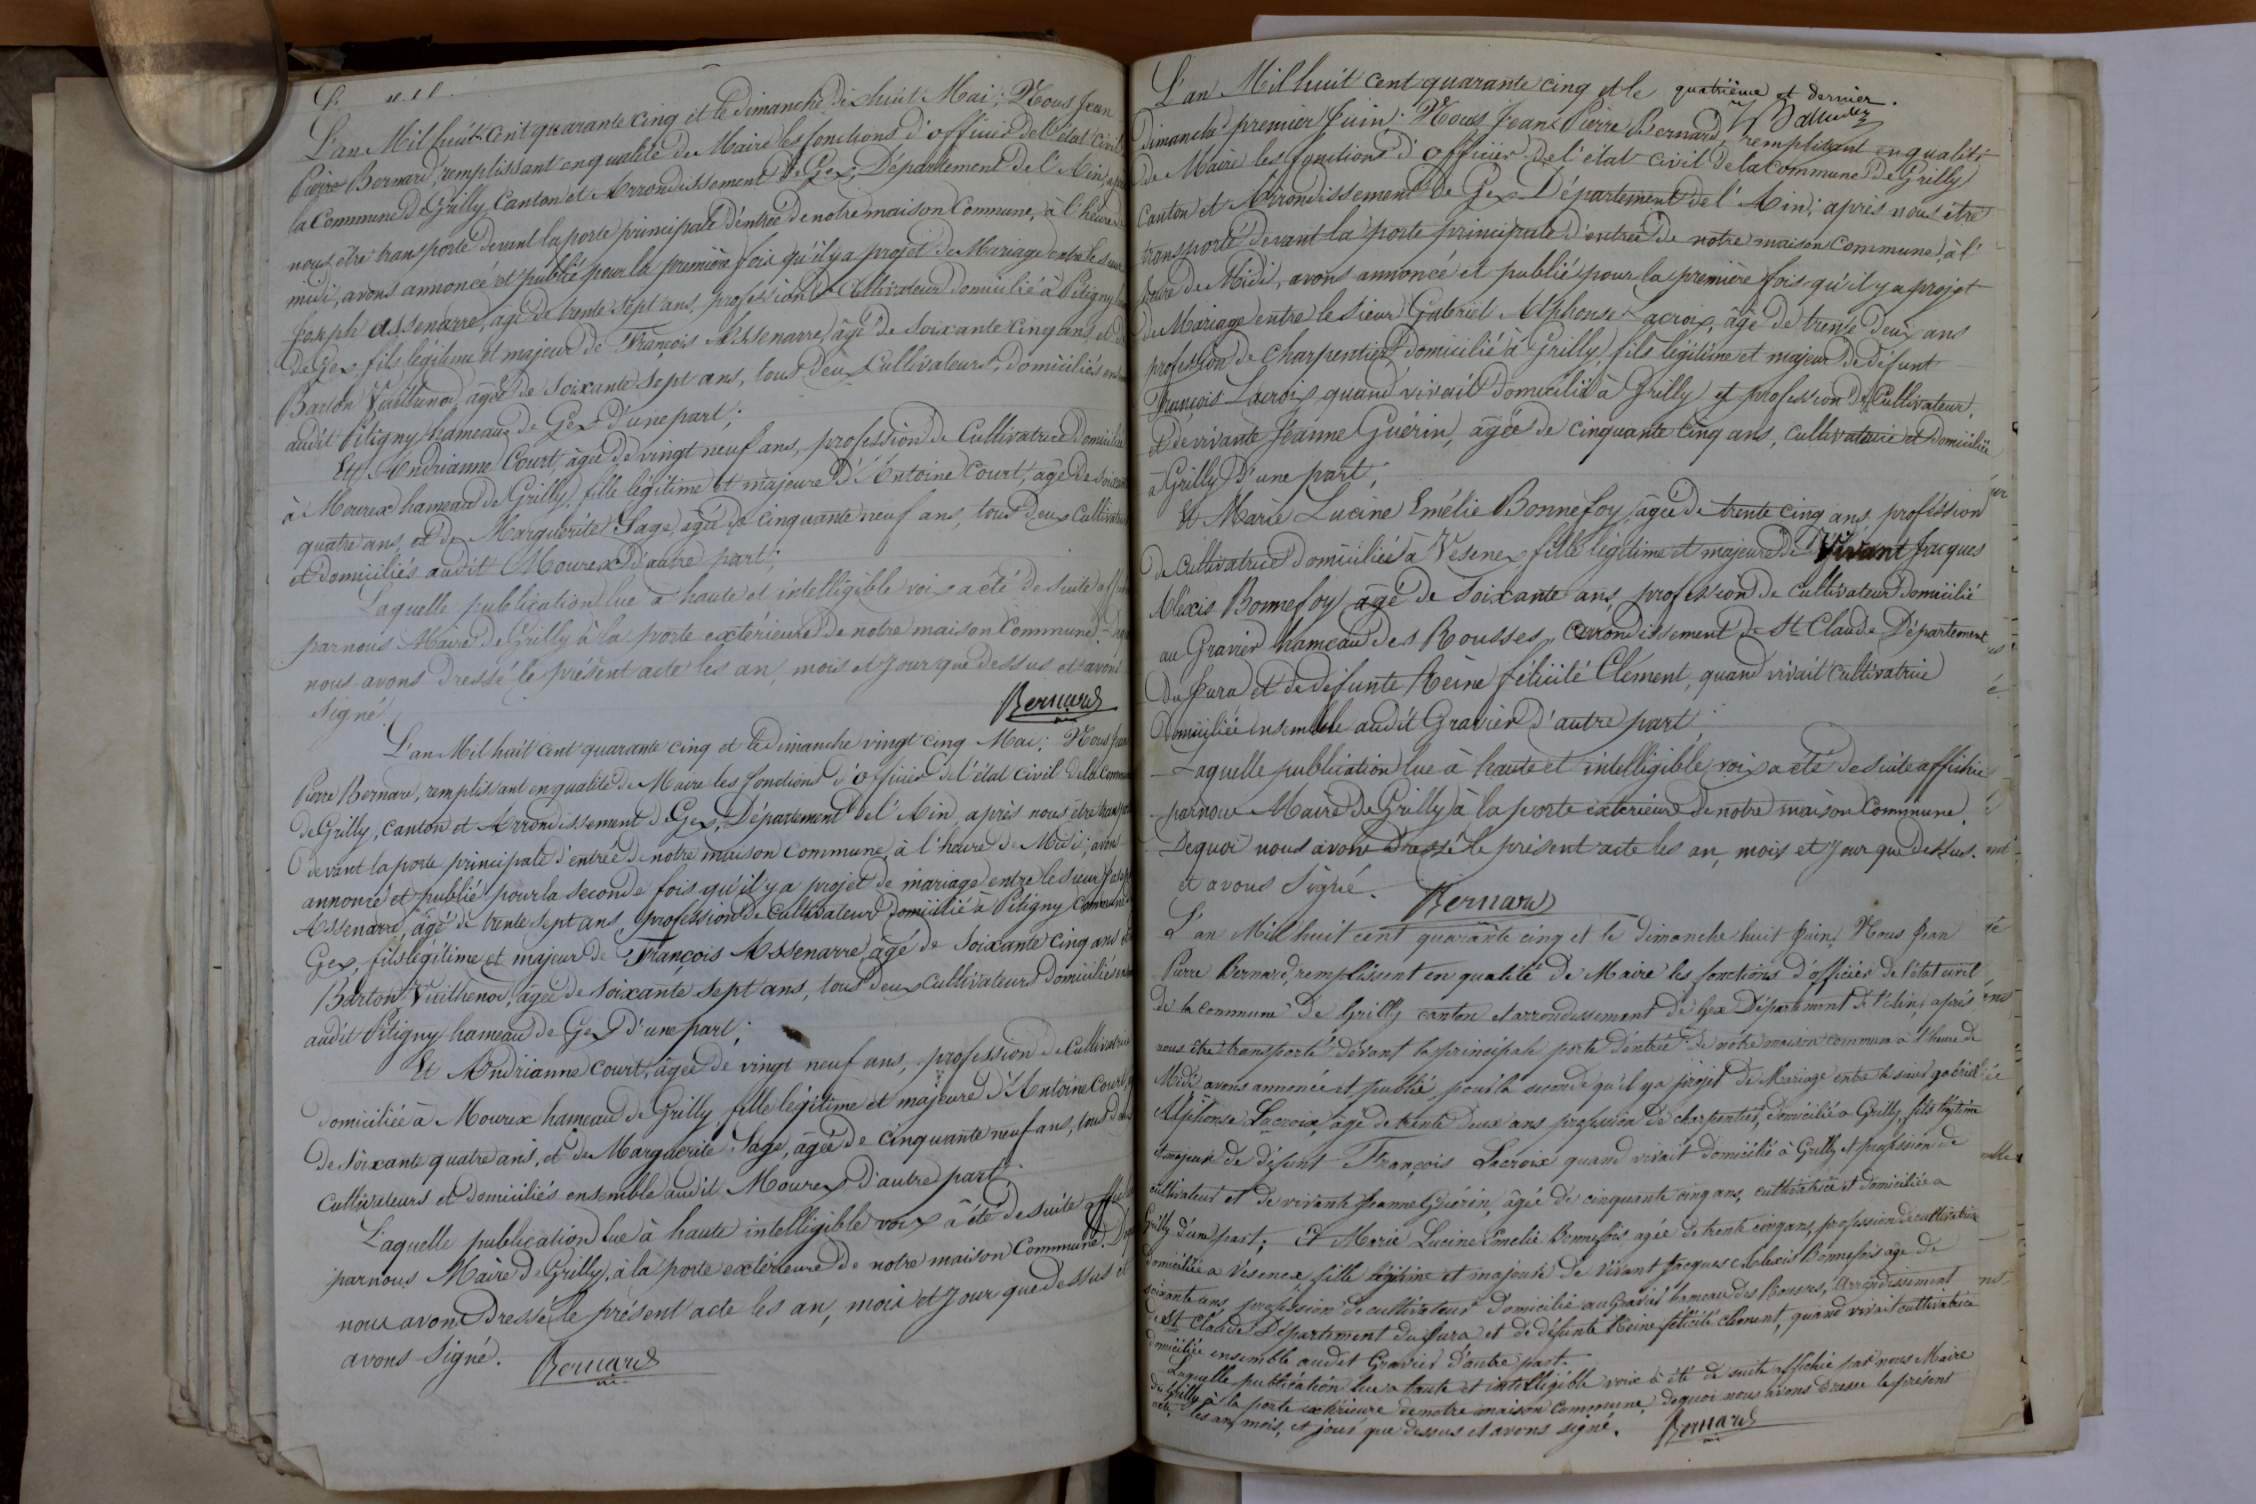 L'an Mil huit cent quarante cinq et le dimanche dix huit Mai; Nous Jean
Pierre Bernard, remplissant en qualité de Maire les fonctions d'officier de l'état civil
la Commune de Grilly, Canton et Arrondissement de Gex, Département de l'Ain, après
nous être transporté devant la porte principale d'entrée de notre maison Commune, à l'heure
midi, avons annoncé et publié pour la première fois qu'il y a projet de Mariage entre le sieur
Joseph Assenarre, âgé de trente sept ans, profession de Cultivateur domicilié à Pitigny
de Gex, fils légitime et majeur de François Assenarre, âgé de soixante cinq ans, et de
Barton, âgée de soixante sept ans, tous deux Cultivateurs, domiciliés
audit Pitigny hameau de Gex d'une part;
Et Andrianne Court, âgée de vingt neuf ans, profession de Cultivatrice domiciliée
à Mourex hameau de Grilly, fille légitime et majeure d'Antoine Court, âgé de soixante
quatre ans, et de Marguerite Sage, âgée de cinquante neuf ans, tous deux Cultivateurs
et domiciliés audit Mourex d'autre part;
Laquelle publication lue à haute et intelligible voix a été de suite
par nous Maire de Grilly à la porte extérieure de notre maison Commune
nous avons dressé le présent acte les an, mois et jour que dessus et avons
signé.
Bernard
L'an Mil huit cent quarante cinq et le dimanche vingt cinq Mai; Nous Jean
Pierre Bernard, remplissant en qualité de Maire les fonctions d'officier de l'état civil de la Commune
de Grilly, canton et Arrondissement de Gex, Département de l'Ain, après nous être transporté
devant la porte principale d'entrée de notre maison commune, à l'heure de Midi, avons
annoncé et publié pour la seconde fois qu'il y a projet de mariage entre le sieur Joseph
Assenarre, âgé de trente sept ans, profession de cultivateur domicilié à Pitigny Commune
Gex, fils légitime et majeur de François Assenarre, âgé de soixante cinq ans
Barton, âgée de soixante sept ans, tous deux cultivateurs domiciliés
audit Pitigny hameau de Gex d'une part;
Et Andrianne Court, âgée de vingt neuf ans, profession de cultivatrice
domiciliée à Mourex hameau de Grilly, fille légitime et majeure d'Antoine Court,
de soixante quatre ans, et de Marguerite Sage, âgée de cinquante neuf ans, tous deux
cultivateurs et domiciliés ensemble audit Mourex d'autre part;
Laquelle publication lue à haute intelligible voix a été de suite affichée
par nous Maire de Grilly, à la porte extérieure de notre maison Commune.
nous avons dressé le présent acte les an, mois et jour que dessus et
avons signé.
Bernard
quatrième et dernier.
L'an Mil huit cent quarante cinq et le
dimanche premier Juin. Nous Jean Pierre Bernard, remplissant en qualité
de Maire les fonctions d'officier de l'état civil de la Commune de Grilly
Canton et Arrondissement de Gex Département de l'Ain; après nous être
transporté devant la porte principale d'entrée de notre maison commune, à l'
heure de Midi, avons annoncé et publié pour la première fois qu'il y a projet
de Mariage entre le sieur Gabriel Alphonse Lacroix, âgé de trente deux ans
profession de charpentier domicilié à Grilly, fils légitime et majeur de défunt
François Lacroix quand vivait domicilié à Grilly et profession de Cultivateur,
et de vivante Jeanne Guérin, âgée de cinquante cinq ans, cultivatrice et domiciliée
à Grilly d'une part;
Et Marie Lucine Emélie Bonnefoy, âgée de trente cinq ans, profession
de cultivatrice domiciliée à Vesenex fille légitime et majeure de Vivant Jacques
Alexis Bonnefoy âgé de soixante ans, profession de Cultivateur domicilié
au Gravier hameau des Rousses, arrondissement de St Claude Département
du Jura et de défunte Reine félicité Clément, quand vivait cultivatrice
domiciliée ensemble audit Gravier d'autre part;
Laquelle publication lue à haute et intelligible voix a été de suite affichée
par nous Maire de Grilly à la porte extérieure de notre maison Commune.
De quoi nous avons dressé le présent acte les an, mois et jour que dessus.
et avons signé.
Bernard
L'an Mil huit cent quarante cinq et le dimanche huit Juin, Nous Jean
Pierre Bernard, remplissent en qualité de Maire les fonctions d'officier de l'état civil
de la commune de Grilly canton et arrondissement de Gex Département de l'Ain, après
nous être transporté devant la principale porte d'entrée de notre maison commune à l'heure de
Midi avons annoncée et publié pour la seconde qu'il y a projet de Mariage entre le sieur gabriel
Alphonse Lacroix, âgé de trente deux ans profession de charpentier, domicilié à Grilly, fils légitime
et majeur de défunt François Lacroix quand vivait domicilié à Grilly et profession de
cultivateur et de vivante Jeanne Guérin, âgée de cinquante cinq ans, cultivatrice et domiciliée a
Grilly d'une part; Et Marie Lucine Emelie Bonnefois agée de trente cinq ans, profession de cultivatrice
domiciliée a Vesenex, fille légitime et majeure de vivant Jacques Alexis Bonnefois âgé de
soixante ans, profession de cultivateur domicilié au Gravier hameau des Rousses, arrondissement
de St Claude Département du Jura et de défunte Reine félicité clément, quand vivait cultivatrice
domiciliée ensemble audit Gravier d'autre part.
Laquelle publication lue a haute et intelligible voix à été de suite affichée par nous Maire
de Grilly à la porte extérieure de notre maison commune, de quoi nous avons dressé le présent
acte, les an, mois, et jour que dessus et avons signé.
Bernard